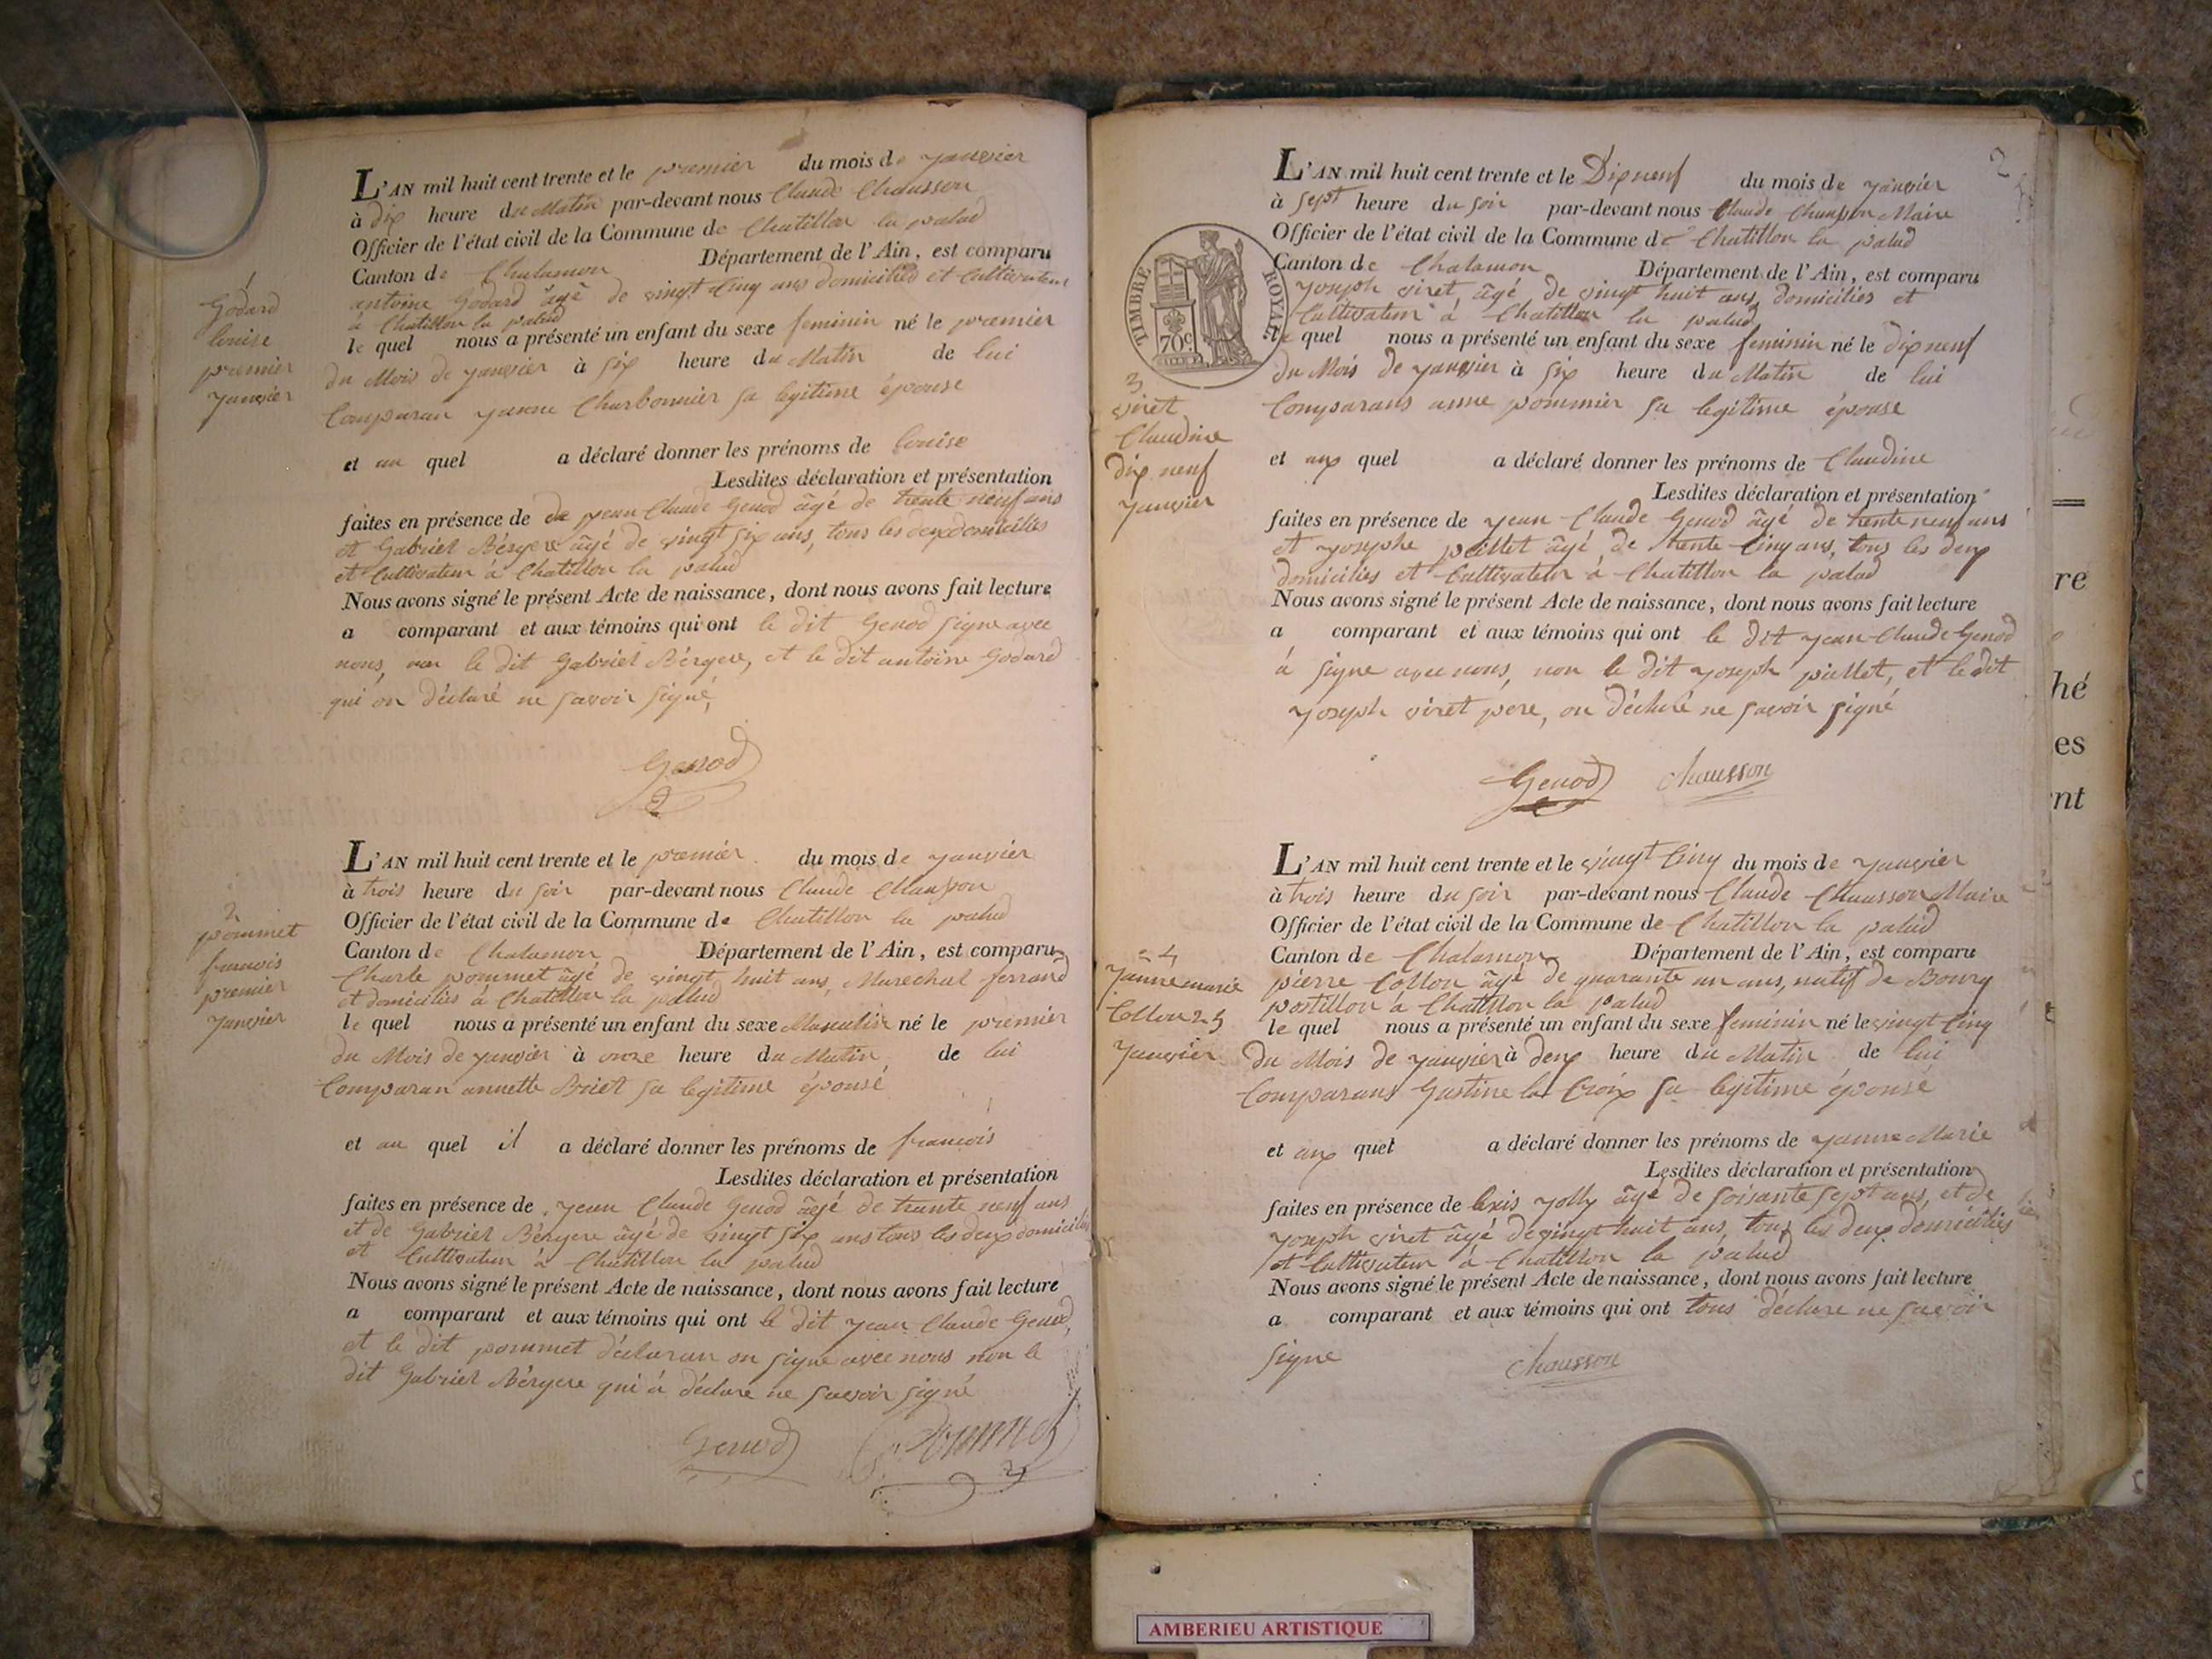 1
Godard
louise
premier
Janvier
L'AN mil huit cent trente et le premier du mois de Janvier
à dix heure du Matin par-devant nous Claude Chausson
Officier de l'état civil de la Commune de Chatillon la palud
Canton de Chalamon Département de l'Ain, est comparu
antoine Godard âgé de vingt Cinq ans domiciliés et Cultivateur
à Chatillon la palud
le quel nous a présenté un enfant du sexe feminin né le premier
du Mois de Janvier à six heure du Matin de lui
Comparan Janne Charbonnier sa legitime épouse
et au quel a déclaré donner les prénoms de louise
Lesdites déclaration et présentation
faites en présence de de Jean Claude Genod âgé de trente neuf ans
et Gabriel Bérgere âgé de vingt six ans, tous les deux domiciliés
et Cultivateur à Chatillon la palud
Nous avons signé le présent Acte de naissance, dont nous avons fait lecture
a comparant et aux témoins qui ont le dit Genod signe avec
nous, non le dit Gabriel Bérgere, et le dit antoine Godard
qui on déclaré ne savoir signé,
Genod
2
pommet
francois
premier
Janvier
L'AN mil huit cent trente et le premier du mois de Janvier
à trois heure du soir par-devant nous Claude Chausson
Officier de l'état civil de la Commune de Chatillon la palud
Canton de Chalamon Département de l'Ain, est comparu
Charle pommet âgé de vingt huit ans, Marechal ferrand
et domiciliés à Chatillon la palud
le quel nous a présenté un enfant du sexe Masculin né le premier
du Mois de Janvier à onze heure du Matin de lui
Comparan annette Briet sa legitime épousé
et au quel il a déclaré donner les prénoms de francois
Lesdites déclaration et présentation
faites en présence de Jean Claude Genod âgé de trante neuf ans
et de Gabriel Bérgere âgé de vingt six ans tous les deux domiciliés
et Cultivateur à Chatillon la palud
Nous avons signé le présent Acte de naissance, dont nous avons fait lecture
a comparant et aux témoins qui ont le dit Jean Claude Genod,
et le dit pommet déclaran on signe avec nous non le
dit Gabriel Bérgere qui à déclare ne savoir signé
Genod pommet
2
TIMBRE ROYAL
70c
3
viret
Claudine
dix neuf
Janvier
L'AN mil huit cent trente et le Dix neuf du mois de Janvier
à sept heure du soir par-devant nous Claude Chausson Maire
Officier de l'état civil de la Commune de Chatillon la palud
Canton de Chalamon Département de l'Ain, est comparu
Joseph viret âgé de vingt huit ans, domiciliés et
Cultivateur à Chatillon la palud
le quel nous a présenté un enfant du sexe feminin né le dix neuf
du Mois de Janvier à six heure du Matin de lui
Comparans anne pommier sa legitime épouse
et aux quel a déclaré donner les prénoms de Claudine
Lesdites déclaration et présentation
faites en présence de Jean Claude Genod âgé de trente neuf ans
et Josephe pillet âgé de trente Cinq ans, tous les deux
domiciliés et Cultivateur à Chatillon la palud
Nous avons signé le présent Acte de naissance, dont nous avons fait lecture
a comparant et aux témoins qui ont le dit Jean Claude Genod
à signe avec nous, non le dit Joseph pillet, et le dit
Joseph viret pere, on déclaré ne savoir signé
Genod Chausson
4
Janne marie
Collon 25
Janvier
L'AN mil huit cent trente et le vingt Cinq du mois de Janvier
à trois heure du soir par-devant nous Claude Chausson Maire
Officier de l'état civil de la Commune de Chatillon la palud
Canton de Chalamon Département de l'Ain, est comparu
pierre Collon âgé de quarante un ans, natif de Bourg
postillon à Chatillon la palud
le quel nous a présenté un enfant du sexe feminin né le vingt Cinq
du Mois de Janvier à deux heure du Matin de lui
Comparans Gustine la Croix sa legitime épousé
et aux quel a déclaré donner les prénoms de Janne Marie
Lesdites déclaration et présentation
faites en présence de Jolly âgé de soisante sept ans, et de
Joseph viret âgé de vingt huit ans, tous les deux domiciliés
et Cultivateur à Chatillon la palud
Nous avons signé le présent Acte de naissance, dont nous avons fait lecture
a comparant et aux témoins qui ont tous déclare ne savoir
signe
Chausson
re
hé
es
nt
AMBERIEU ARTISTIQUE